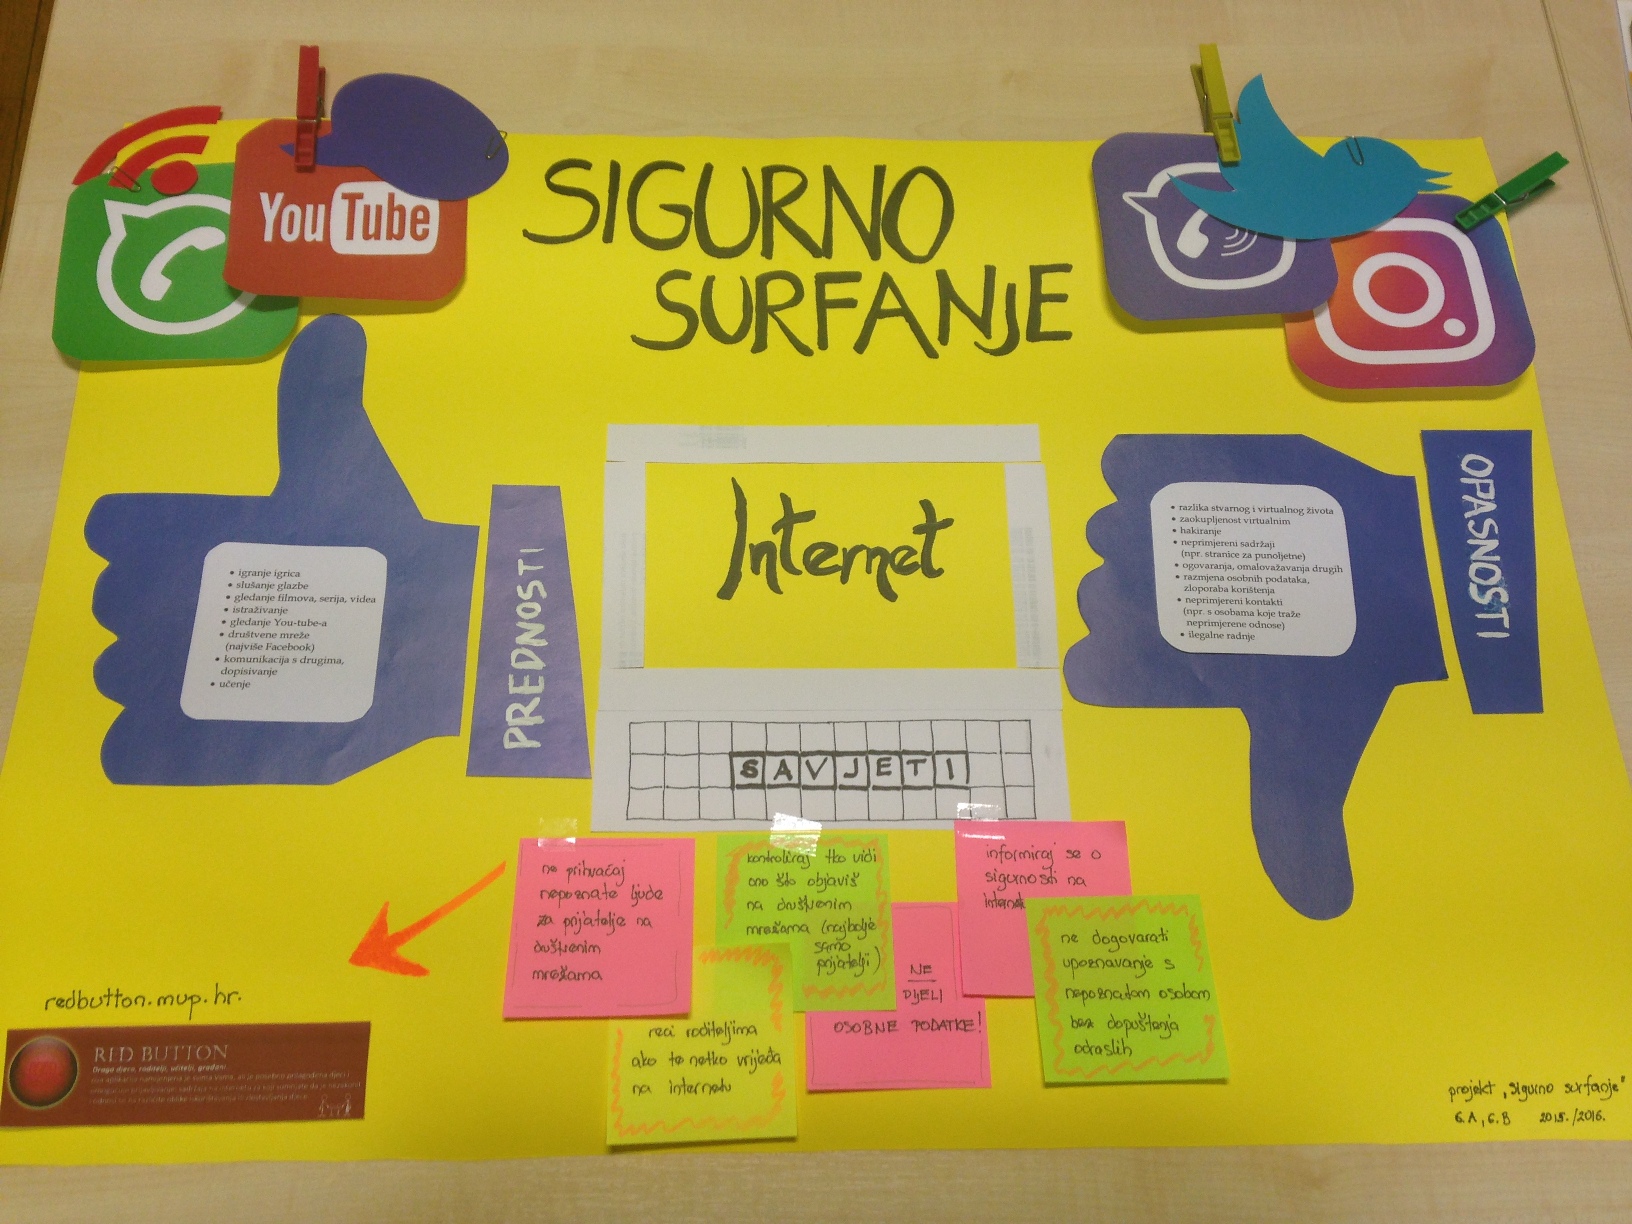 You Tube
SIGURNO
SURFANJE
Internet
PREDNOSTI
• igranje igrica
• slušanje glazbe
• gledanje filmova, serija, videa
• istraživanje
• gledanje You-tube-a
• društvene mreže
(najviše Facebook)
• komunikacija s drugima,
dopisivanje
• učenje
OPASNOSTI
• razlika stvarnog i virtualnog života
• zaokupljenost virtualnim
• hakiranje
• neprimjereni sadržaji
(npr. stranice za punoljetne)
• ogovaranja, omalovažavanja drugih
• razmjena osobnih podataka,
zloporaba korištenja
• neprimjereni kontakti
(npr. s osobama koje traže
neprimjerene odnose)
• ilegalne radnje
SAVJETI
ne prihvaćaj
nepoznate ljude
za prijatelje na
društvenim
mrežama
kontroliraj tko vidi
ono što objaviš
na društvenim
mrežama (najbolje
samo
prijatelji)
informiraj se o
sigurnosti na
internetu
reci roditeljima
ako te netko vrijeđa
na internetu
NE
DIJELI
OSOBNE PODATKE!
ne dogovarati
upoznavanje s
nepoznatom osobom
bez dopuštenja
odraslih
redbutton.mup.hr.
RED BUTTON
Draga djeco, roditelji, učitelji, građani,
projekt „Sigurno surfanje"
6.A, 6.B 2015./2016.